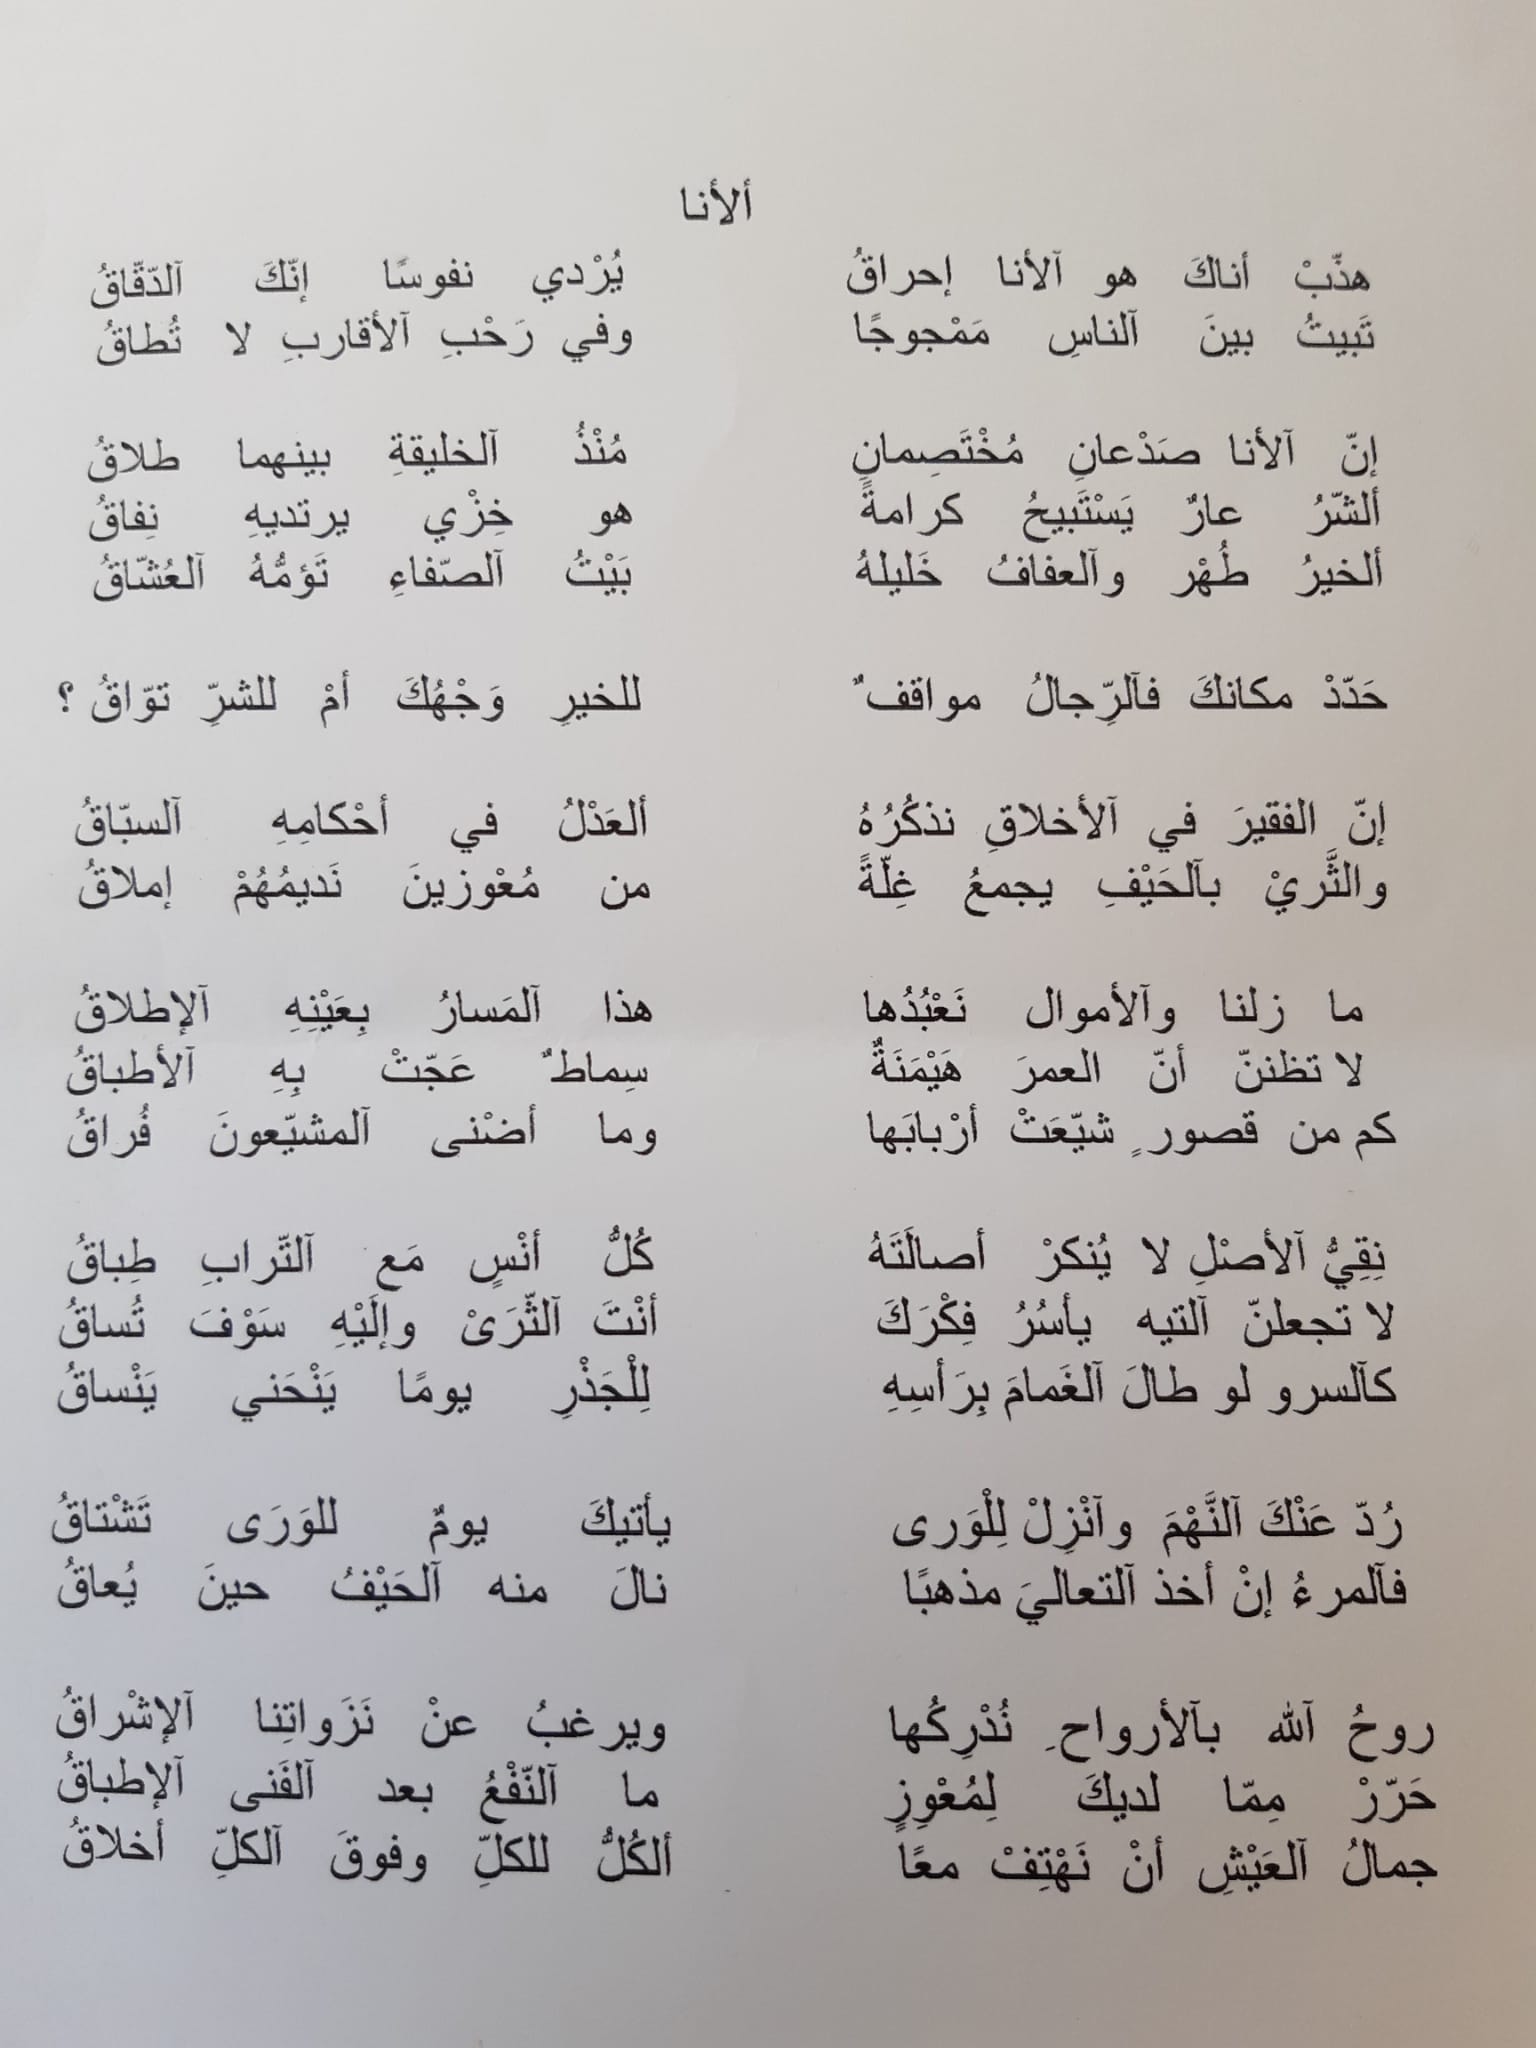 ألأنا
هذّبْ أناكَ هو آلأنا إحراقُ يُرْدي نفوسًا إنّكَ آلدّقّاقُ
تَبيتُ بينَ آلناسِ مَمْجوجًا وفي رَحْبِ آلأقاربِ لا تُطاقُ
إنّ آلأنا صَدْعانِ مُخْتَصِمانِ مُنْذُ آلخليقةِ بينهما طلاقُ
ألشّرُ عارٌ يَسْتَبيحُ كرامةً هو خِزْي يرتديهِ نِفاقُ
ألخيرُ طُهْر وآلعفافُ خَليلهُ بَيْتُ آلصّفاءِ تَؤمُّهُ آلعُشّاقُ
حَدّدْ مكانكَ فآلرِّجالُ مواقفٌ للخيرِ وَجْهُكَ أمْ للشرِّ توّاقُ ؟
إنّ الفقيرَ في آلأخلاقِ نذكُرُهُ ألعَدْلُ في أحْكامِهِ آلسبّاقُ
والثَّريْ بآلحَيْفِ يجمعُ غِلّةً من مُعْوزينَ نَديمُهُمْ إملاقُ
ما زلنا وآلأموال نَعْبُدُها هذا آلمَسارُ بِعَيْنِهِ آلإطلاقُ
لا تظننّ أنّ العمرَ هَيْمَنَةٌ سِماطٌ عَجّتْ بِهِ آلأطباقُ
كم من قصورٍ شيّعَتْ أرْبابَها وما أضْنى آلمشيّعونَ فُراقُ
نِقِيُّ آلأصْلِ لا يُنكرْ أصالَتَهُ كُلُّ أنْسٍ مَع آلتّرابِ طِباقُ
لا تجعلنّ آلتيه يأسُرُ فِكْرَكَ أنْتَ آلثّرَىْ وإلَيْهِ سَوْفَ تُساقُ
كآلسرو لو طالَ آلغَمامَ بِرَأسِهِ لِلْجَذْرِ يومًا يَنْحَني يَنْساقُ
رُدّ عَنْكَ آلنَّهْمَ وآنْزِلْ لِلْوَرى يأتيكَ يومٌ للوَرَى تَشْتاقُ
فآلمرءُ إنْ أخذ آلتعاليَ مذهبًا نالَ منه آلحَيْفُ حينَ يُعاقُ
روحُ آلله بآلأرواحِ نُدْرِكُها ويرغبُ عنْ نَزَواتِنا آلإشْراقُ
حَرّرْ مِمّا لديكَ لِمُعْوِزٍ ما آلنّفْعُ بعد آلفَنى آلإطباقُ
جمالُ آلعَيْشِ أنْ نَهْتِفْ معًا ألكُلُّ للكلِّ وفوقَ آلكلِّ أخلاقُ